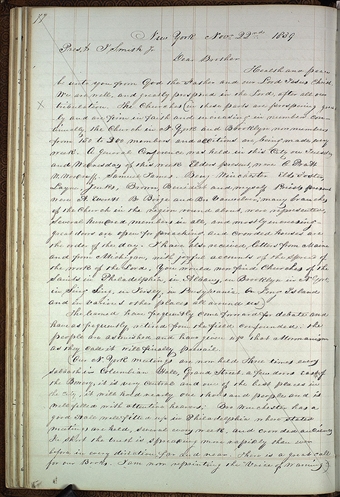 77
New York Nov. 22nd 1839
Prest. J Smith Jr
Dear Brother
Health and peace
be unto you from God the Father and our Lord Jesus Christ
We are well, and greatly prospered in the Lord, after all our
tribulation. The Churches in these parts are prospering greatly
and are firm in faith and increasing in numbers continually
The Church in N York and Brooklyn, now numbers
from 150 to 200 members and additions are being made every
week. A General Conference was held in this City on Tuesday
and Wednesday of this week. Elders present, were O. Pratt
W. Woodruff, Samuel James, Benj. Winchester, Elds Foster,
Layne, Jenks, Brown, Benedict and myself Priests present
were A. Everett B. Birge and Van Vanvelver, many branches
of the Church in the region round about, were represented,
several hundred members in all, and mostly
fresh doors are open for preaching, and crowded houses are
the order of the day. I have also received, letters from Maine
and from Michigan, with joyful accounts of the spread of
the work of the Lord. You would now find Churches of the
Saints in Philadelphia, in Albany, in Brooklyn in N York,
in Sing Sing, in Jersey, in Pennsylvania on Long Island
and in various other places all around us
The learned have frequently come forward in debate and
have as frequently, retired from the field confounded. the
people are astonished and have given up that Mormonism
as they call it will finally prevail.
Our N York meetings are now held three times every
sabbath in Columbian Hall, Grand Street, a few doors east of
the Bowery, it is very central and one of the best places in
the city, it will hold nearly one thousand people and is
well filled with attentive hearers. Br Winchester has a
good Hall well fitted up in Philadelphia where stated
meetings are held, several every week, and crowds attending
In short the truth is spreading more rapidly than ever
before in every direction far and near. There is a great call
for our Books. I am now reprinting the Voice of Warning